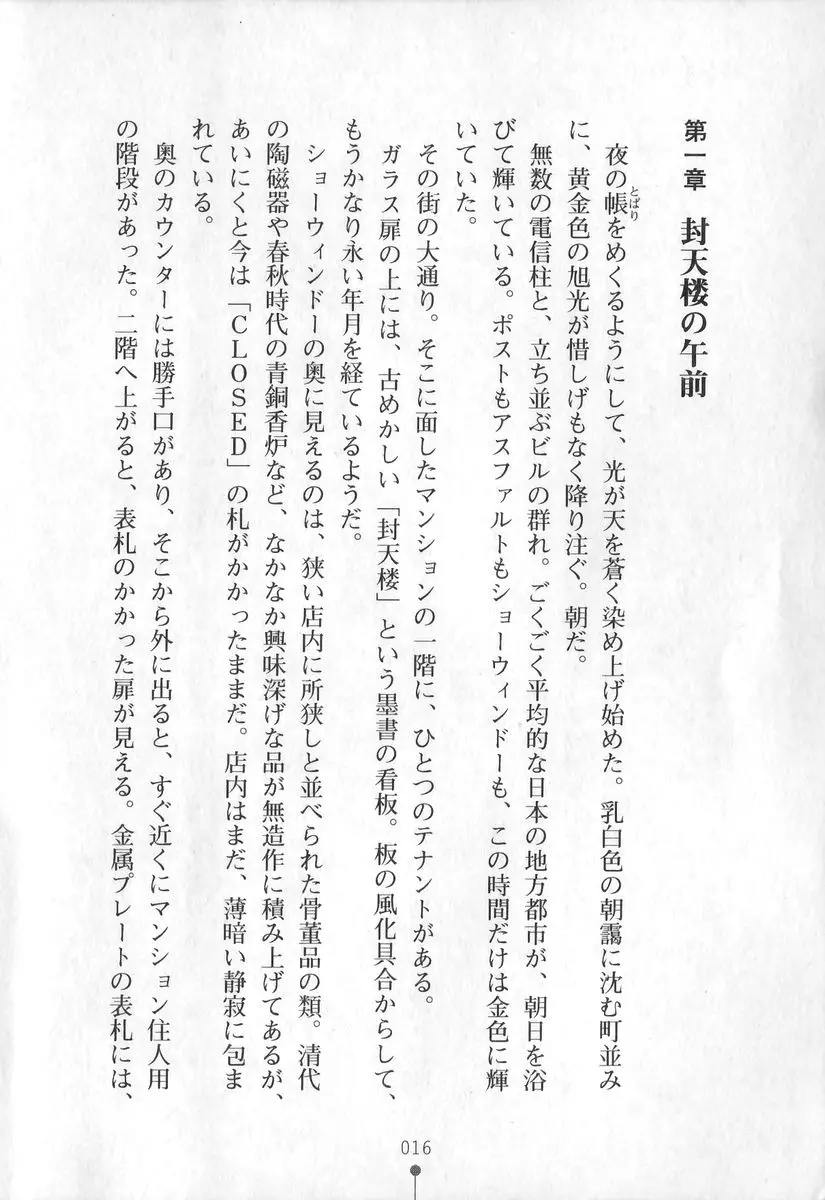 第一章　封天楼の午前
夜の帳をめくるようにして、光が天を蒼く染め上げ始めた。乳白色の朝靄に沈む町並み
とばり
に、黄金色の旭光が惜しげもなく降り注ぐ。朝だ。
無数の電信柱と、立ち並ぶビルの群れ。ごくごく平均的な日本の地方都市が、朝日を浴
びて輝いている。ポストもアスファルトもショーウィンドーも、この時間だけは金色に輝
いていた。
その街の大通り。そこに面したマンションの一階に、ひとつのテナントがある。
ガラス扉の上には、古めかしい「封天楼」という墨書の看板。板の風化具合からして、
もうかなり永い年月を経ているようだ。
ショーウィンドーの奥に見えるのは、狭い店内に所狭しと並べられた骨董品の類。清代
の陶磁器や春秋時代の青銅香炉など、なかなか興味深げな品が無造作に積み上げてあるが、
あいにくと今は「CLOSED」の札がかかったままだ。店内はまだ、薄暗い静寂に包ま
れている。
奥のカウンターには勝手口があり、そこから外に出ると、すぐ近くにマンション住人用
の階段があった。二階へ上がると、表札のかかった扉が見える。金属プレートの表札には、
016